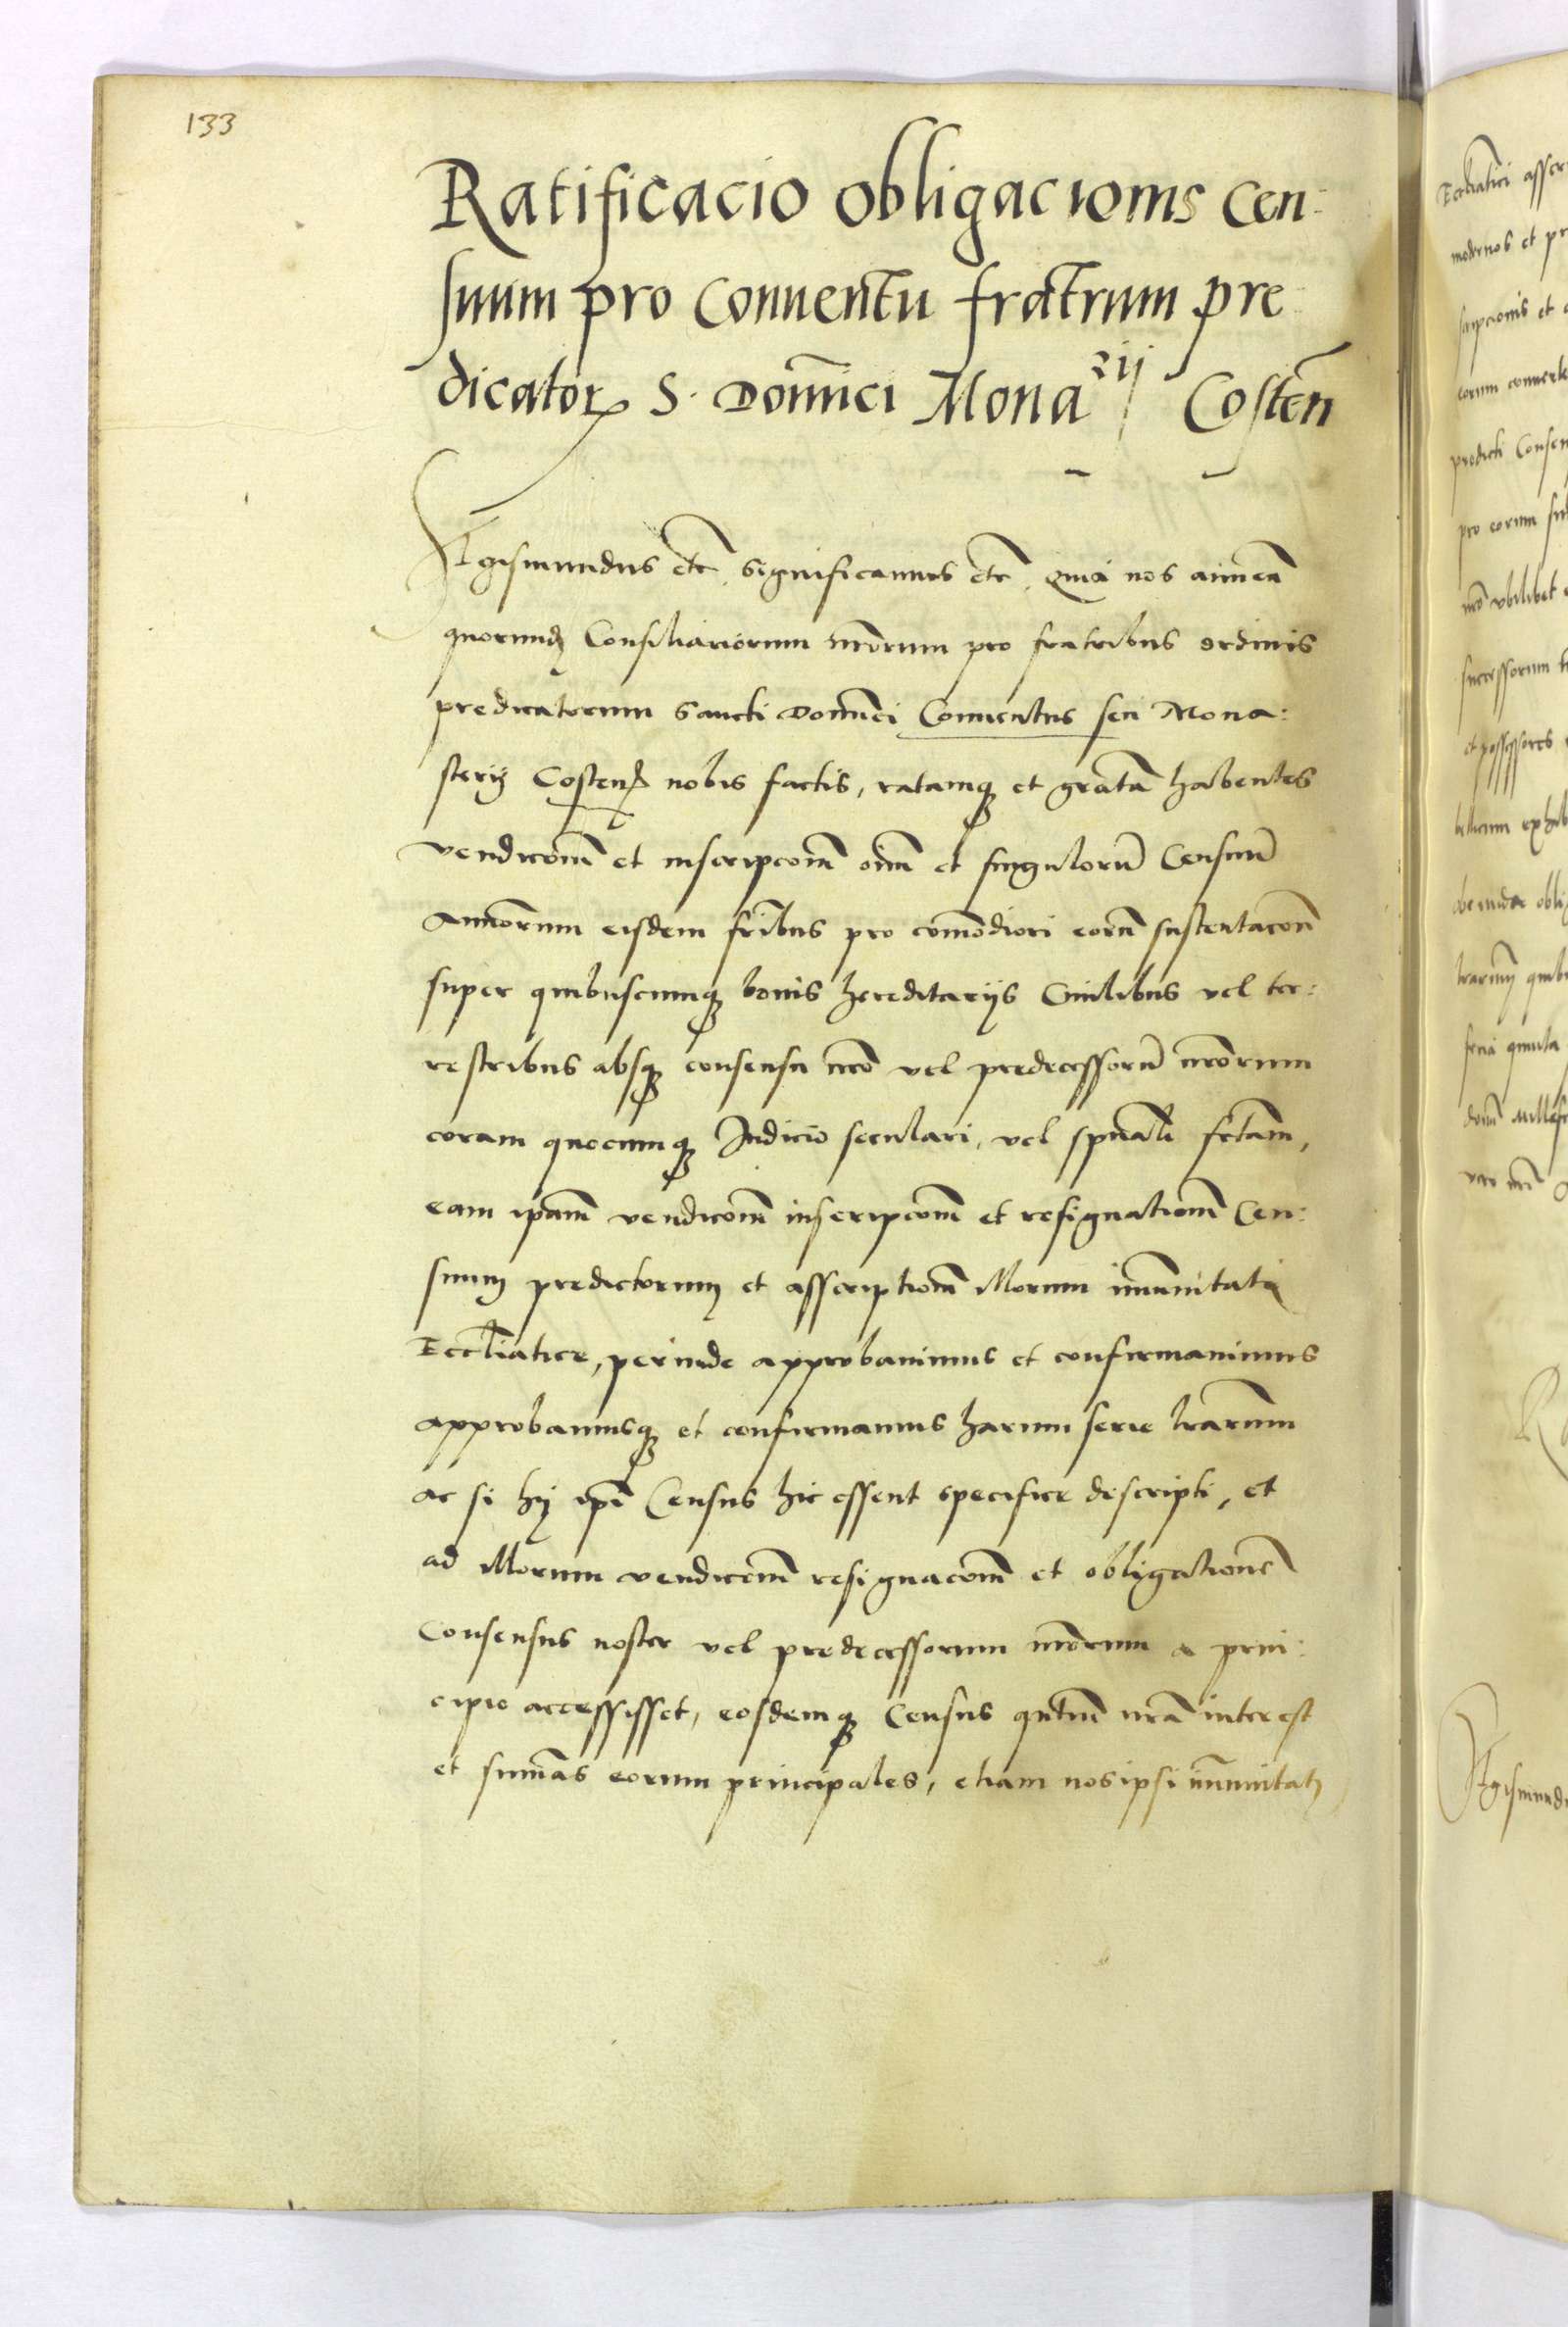 133
Ratificacio obligacionis Cen:
suum pro Conuentu fratrum pre
dicatoꝝ S. Dom̃ici Monarij Costeñ
Sigismundus etc̃. significamus etc̃. Quia nos
quorundꝫ Consiliariorum nr̃orum pro fratribus ordinis
predicatorum Sancti Dom̃ici Conuentus seu Mona:
sterij Costenꝫ nobis factis, ratamqꝫ et gratã habentes
vendicom̃ et inscripcom̃ oĩm et singulorũ Censuũ
Annorum eisdem fr̃ibus pro com̃odiori eorũ sustentacõn
super quibuscumqꝫ bonis hereditarijs Ciuilibus vel ter:
restribus absqꝫ consensu nr̃o vel predecessorũ nr̃orum
coram quocumqꝫ Iudicio seculari, vel sp̃uali fc̃tam,
eam ip̃am vendicom̃ inscripcom̃ et resignationem̃ Cen:
suum predictorum et asscriptionem̃ illorum im̃unitati
Eccl̃iatice, perinde approbauimus et confirmauimus
approbamusqꝫ et confirmamus harum serie lr̃arum
ac si hij ip̃i Census hic essent specifice descripti, et
ad illorum vendicom̃ resignacom̃ et obligationẽ
Consensus noster vel predecessorum nr̃orum a prin:
cipio accessisset, eosdemqꝫ Census qñtum nr̃a interest
et sum̃as eorum principales, etiam nos ipsi im̃unitatj
Eccl̃iatici asser
modernos et pr
scripcionis et
eorum
predicti Consen
pro eorum
nr̃o vbilibet
successorum
et possessores
exhib
obli
trarum quibus
feria quinta
dom̃ Millesi
vero nr̃i
R
Sigismund